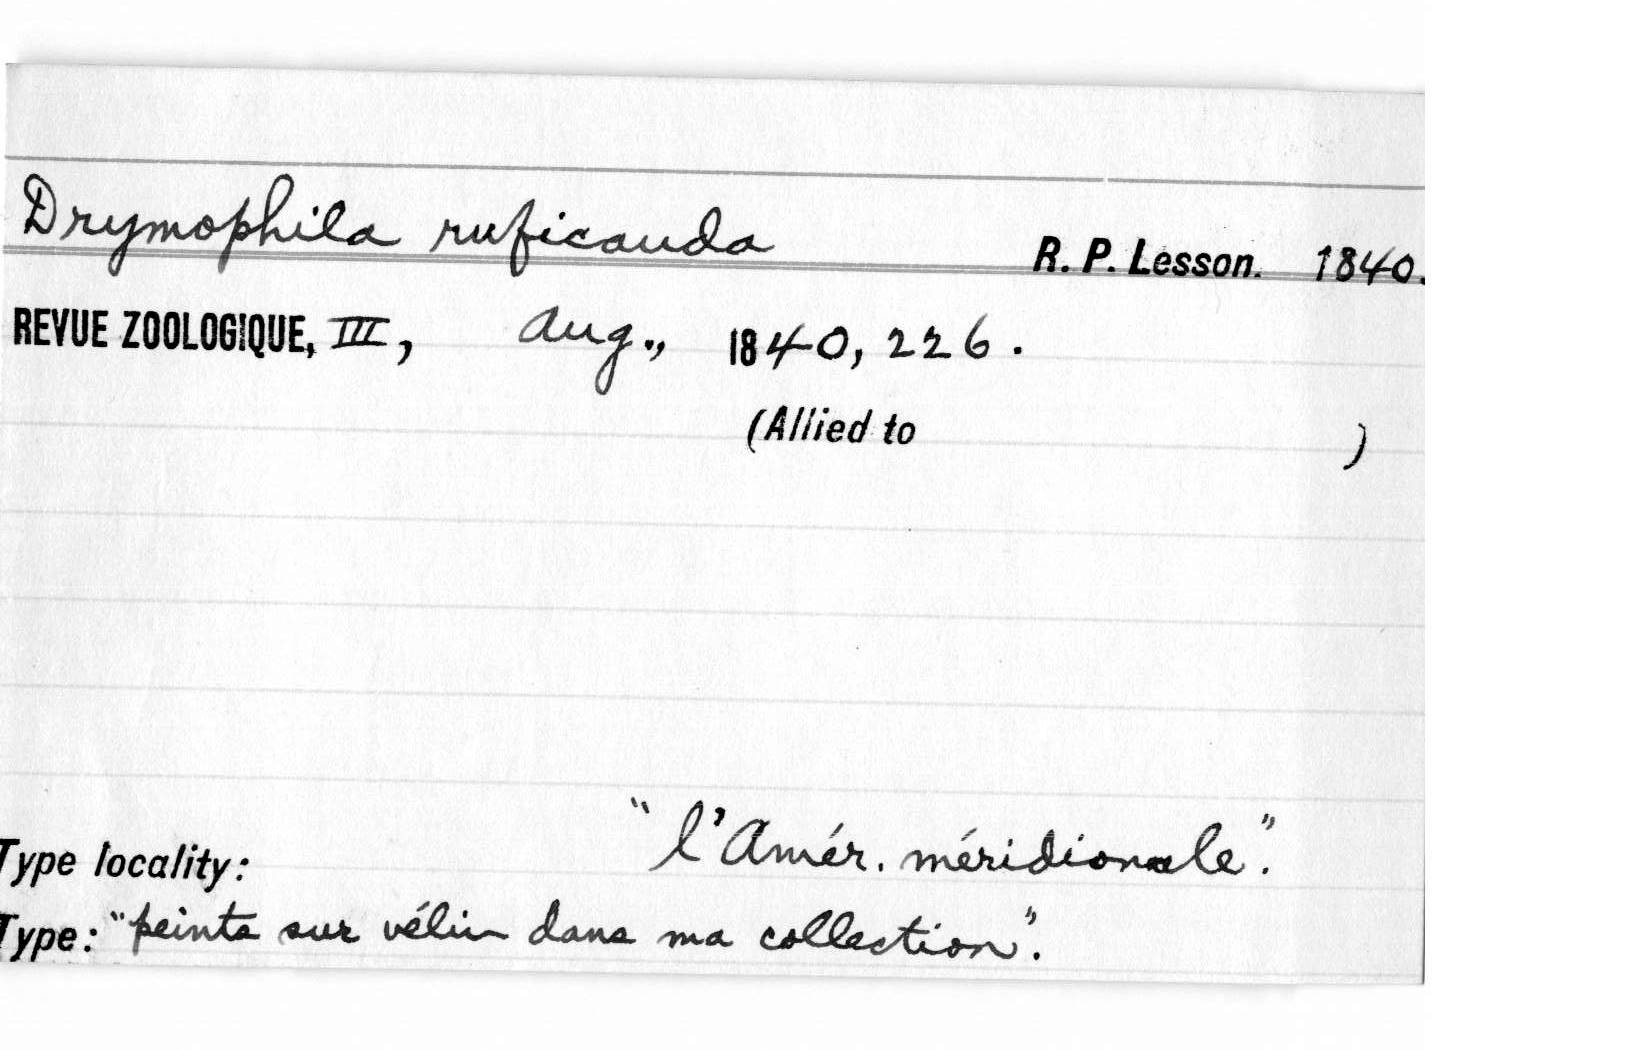 Drymophila ruficauda R. P. Lesson. 1840.
REVUE ZOOLOGIQUE, III, Aug., 1840, 226.
(Allied to )
Type locality: "l'Amér. méridionale".
Type: "peints sur vélin dans ma collection".